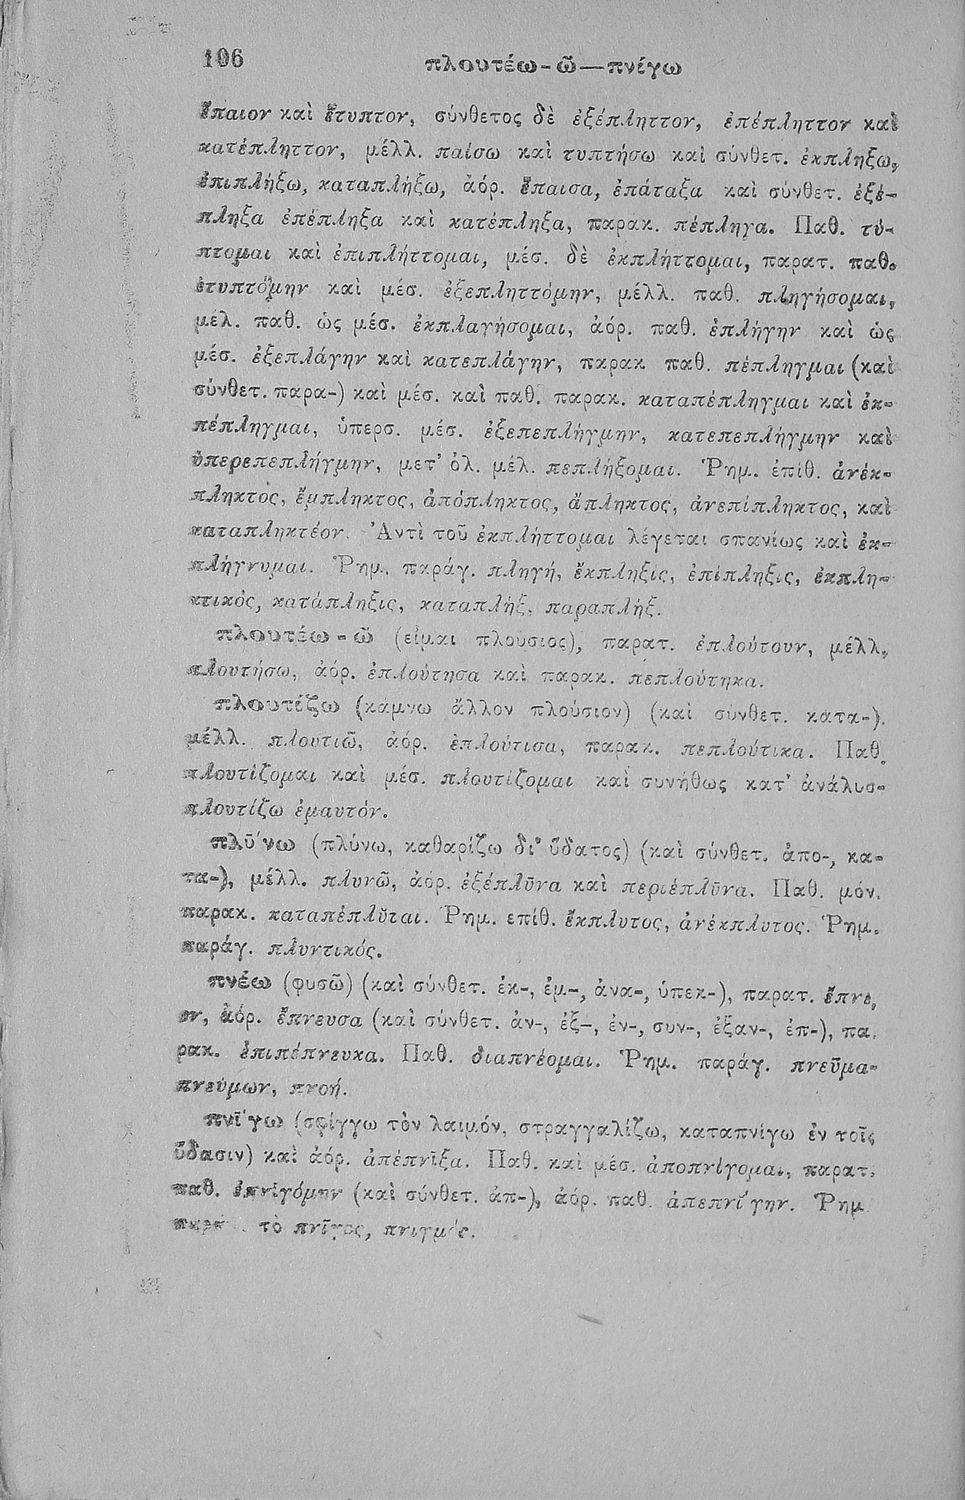 106
πλουτέω-ῶ—πνίγω
ἔπαιον καὶ ἔτυπτον, σύνθετος δὲ ἐξέπληττον, ἐπέπληττον καὶ
κατέπληττον, μέλλ. παίσω καὶ τυπτήσω καὶ σύνθετ. ἐκπλήξω,
ἐπιπλήξω, καταπλήξω, ἀόρ. ἔπαισα, ἐπάταξα καὶ σύνθετ. ἐξέ-
πληξα ἐπέπληξα καὶ κατέπληξα, παρακ. πέπληγα. Παθ. τύ-
πτομαι καὶ ἐπιπλήττομαι, μέσ. δὲ ἐκπλήττομαι, παρατ. παθ.
ἐτυπτόμην καὶ μέσ. ἐξεπληττόμην, μέλλ. παθ. πληγήσομαι,
μέλ. παθ. ὡς μέσ. ἐκπλαγήσομαι, ἀόρ. παθ. ἐπλήγην καὶ ὡς
μέσ. ἐξεπλάγην καὶ κατεπλάγην, παρακ παθ. πέπληγμαι (καὶ
σύνθετ. παρα-) καὶ μέσ. καὶ παθ. παρακ. καταπέπληγμαι καὶ ἐκ-
πέπληγμαι, ὑπερσ. μέσ. ἐξεπεπλήγμην, κατεπεπλήγμην καὶ
ὑπερεπεπλήγμην, μετ' ὀλ. μέλ. πεπλήξομαι. Ῥημ. ἐπίθ. ἀνέκ-
πληκτος, ἔμπληκτος, ἀπόπληκτος, ἄπληκτος, ἀνεπίπληκτος, καὶ
καταπληκτέον. Ἀντὶ τοῦ ἐκπλήττομαι λέγεται σπανίως καὶ ἐκ-
πλήγνυμαι. Ῥημ. παράγ. πληγή, ἔκπληξις, ἐπίπληξις, ἐκπλη-
κτικὸς, κατάπληξις, καταπλήξ, παραπλήξ.
πλουτέω-ῶ (εἶμαι πλούσιος), παρατ. ἐπλούτουν, μέλλ.
πλουτήσω, ἀόρ. ἐπλούτησα καὶ παρακ. πεπλούτηκα.
πλουτίζω (κάμνω ἄλλον πλούσιον) (καὶ σύνθετ. κατα-).
μέλλ. πλουτιῶ, ἀόρ. ἐπλούτισα, παρακ. πεπλούτικα. Παθ.
πλουτίζομαι καὶ μέσ. πλουτίζομαι καὶ συνήθως κατ' ἀνάλυσ-
πλουτίζω ἐμαυτόν.
πλῡ́νω (πλύνω, καθαρίζω δι' ὕδατος) (καὶ σύνθετ. ἀπο-, κα-
τα-), μέλλ. πλυνῶ, ἀόρ. ἐξέπλῡνα καὶ περιέπλῡνα. Παθ. μόν.
παρακ. καταπέπλῠται. Ῥημ. επίθ. ἔκπλυτος, ἀνέκπλυτος. Ῥημ.
παράγ. πλυντικός.
πνέω (φυσῶ) (καὶ σύνθετ. ἐκ-, ἐμ-, ἀνα-, ὑπεκ-), παρατ. ἔπνε,
ον, ἀόρ. ἔπνευσα (καὶ σύνθετ. ἀν-, ἐξ-, ἐν-, συν-, ἐξαν-, ἐπ-), πα.
ρακ. ἐπιπέπνευκα. Παθ. διαπνέομαι. Ῥημ. παράγ. πνεῦμα-
πνεύμων, πνοή.
πνῑ́γω (σφίγγω τὸν λαιμόν, στραγγαλίζω, καταπνίγω ἐν τοῖς
ὕδασιν) καὶ ἀόρ. ἀπέπνῑξα. Παθ. καὶ μέσ. ἀποπνίγομαι, παρατ.
παθ. ἐπνῑγόμην (καὶ σύνθετ. ἀπ-), ἀόρ. παθ. ἀπεπνῐ́γην. Ῥημ
τὸ πνῖγος, πνιγμός.